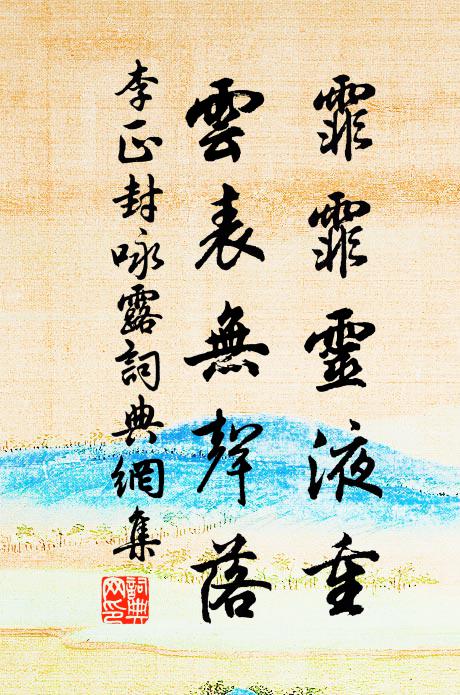 霏霏靈液重
雲表無聲落
李正封咏露詞典網集